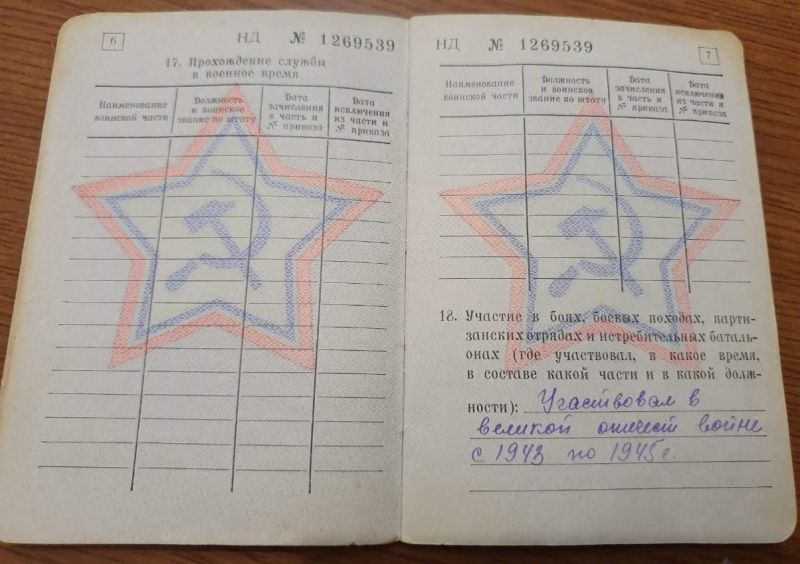 6
НД № 1269539
17. Прохождение службы
в военное время
Наименование
воинской части
Должность
и воинское
звание по штату
Дата
зачисления
в часть и
№ приказа
Дата
исключения
из части и
№ приказа
НД № 1269539
7
Наименование
воинской части
Должность
и воинское
звание по штату
Дата
зачисления
в часть и
№ приказа
Дата
исключения
из части и
№ приказа
18. Участие в боях, боевых походах, парти-
занских отрядах и истребительных баталь-
онах (где участвовал, в какое время,
в составе какой части и в какой долж-
ности): Участвовал в
великой отечест войне
с 1943 по 1945г.